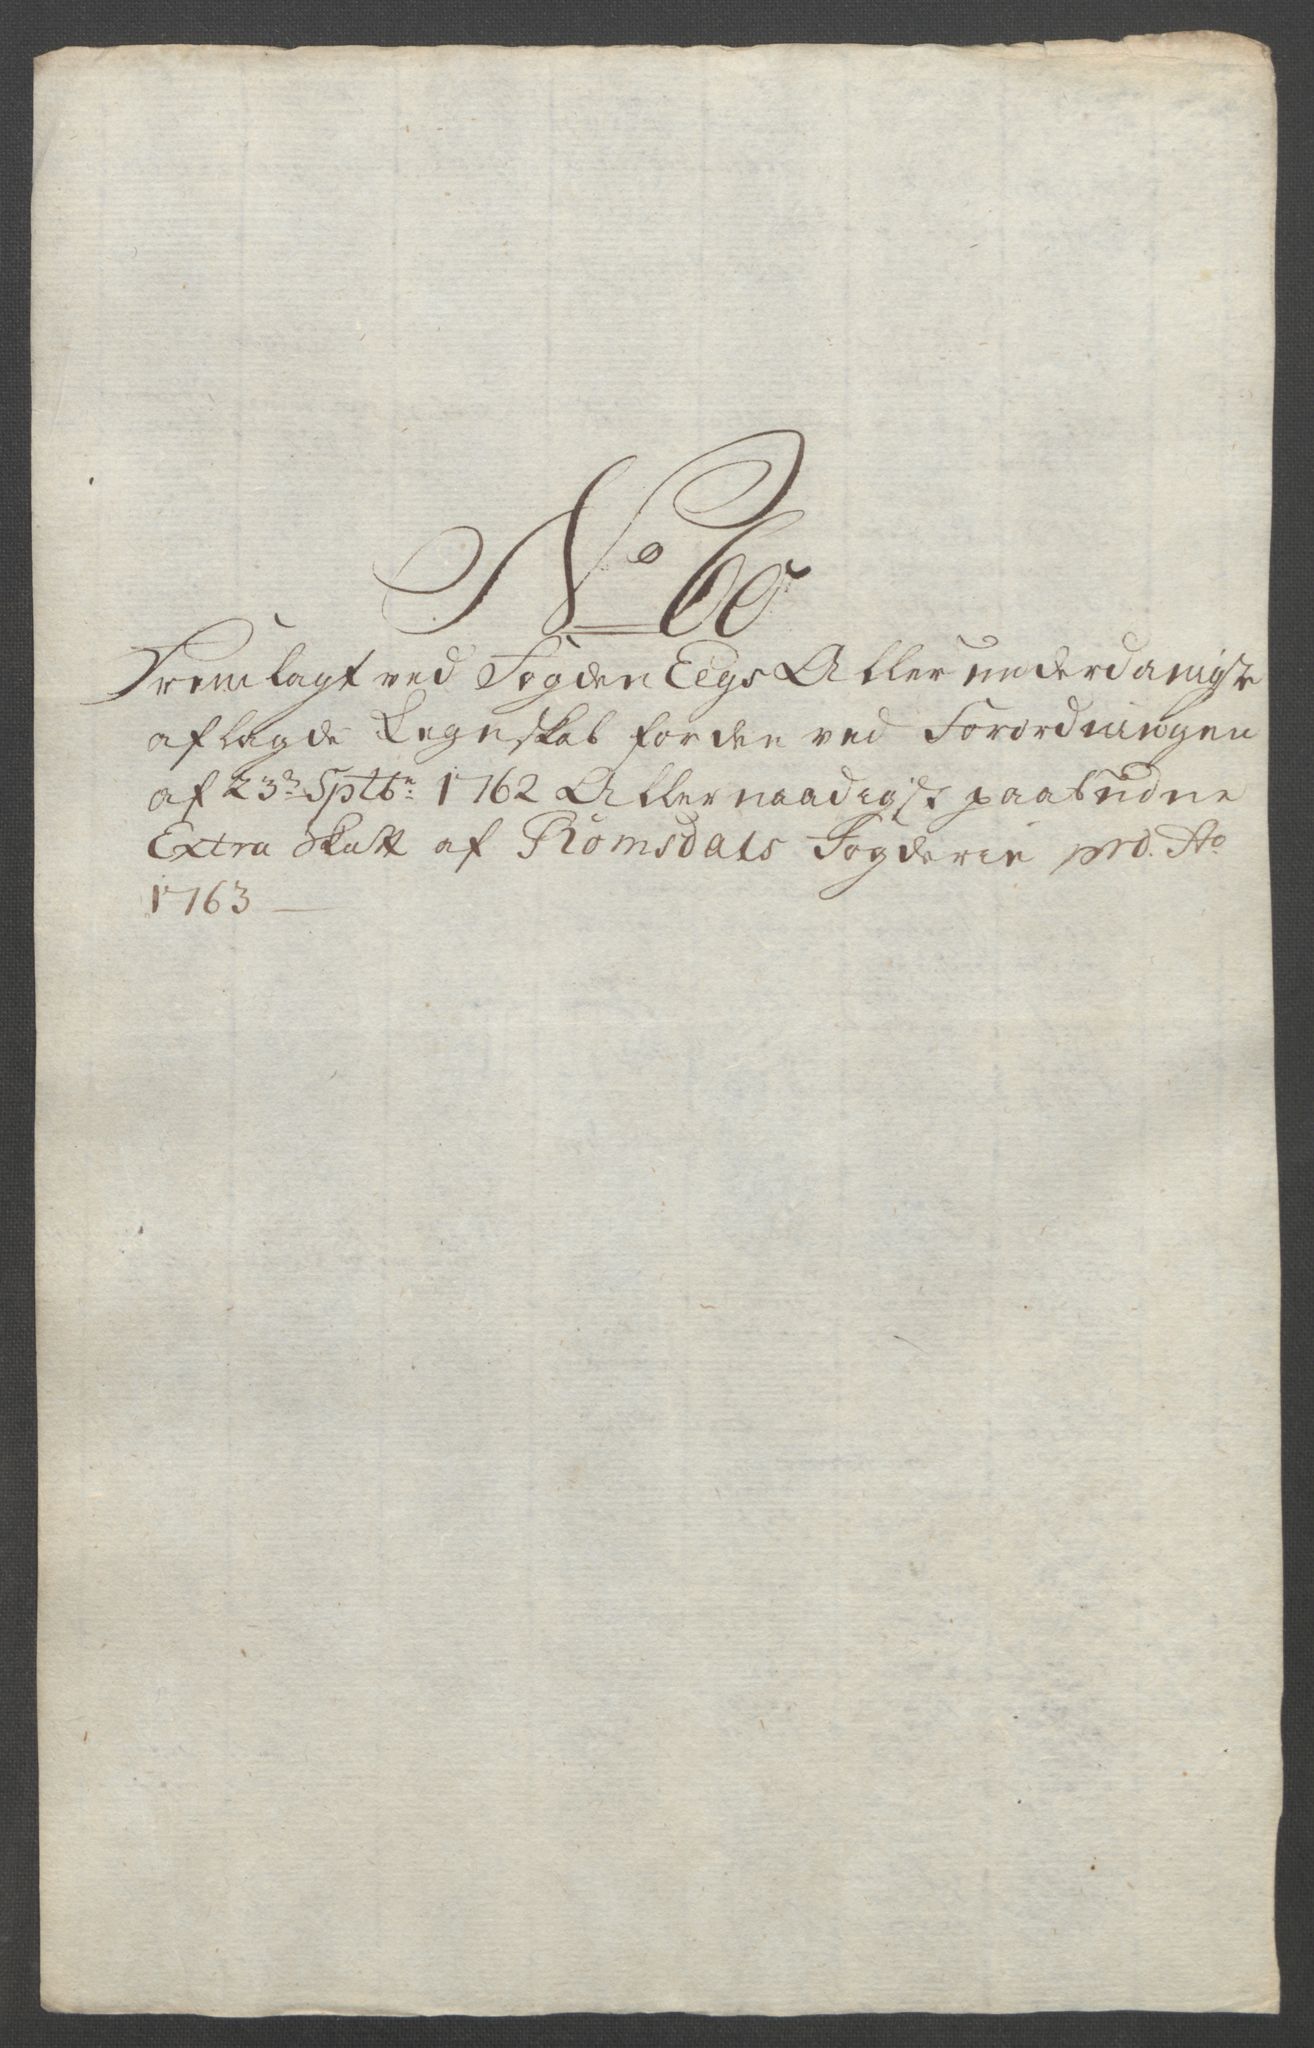 No 60
Fremlagt ved Fogden Eegs Allerunderdanigst
aflagde Regnskab for den ved Forordningen
af 23de Sptbr: 1762 Allernaadigst paabudne
Extra Skatt af Romsdals Fogderie pro. Ao
1763